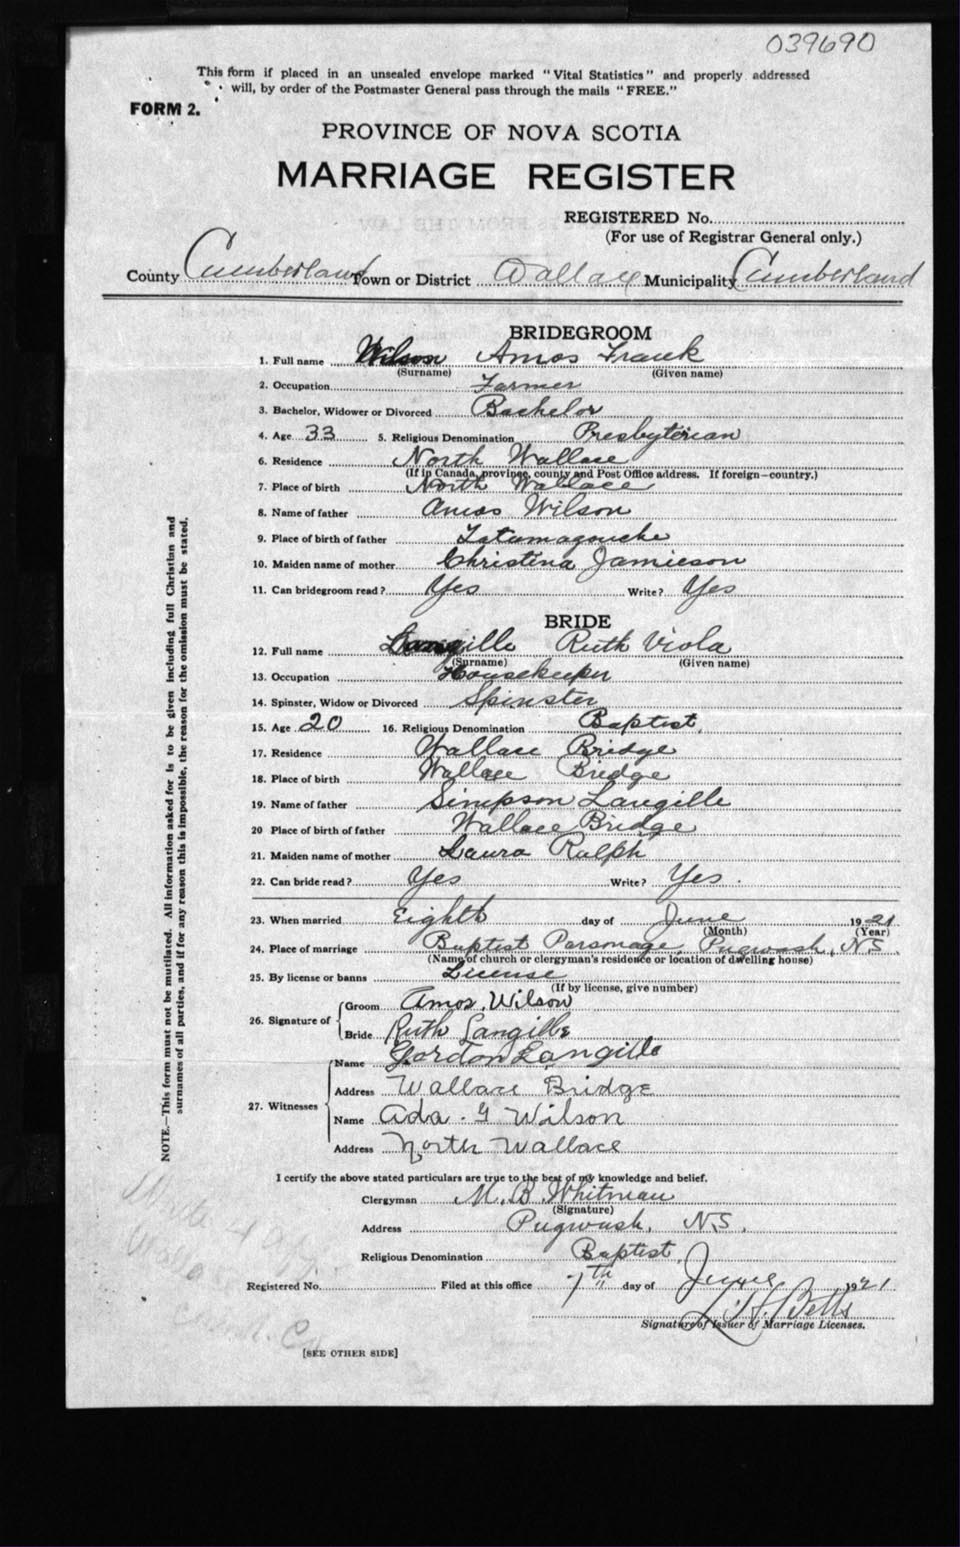 039690
This form if placed in an unsealed envelope marked "Vital Statistics" and properly addressed
will, by order of the Postmaster General pass through the mails "FREE."
FORM 2.
PROVINCE OF NOVA SCOTIA
MARRIAGE REGISTER
REGISTERED No.
(For use of Registrar General only.)
County Cumberland Town or District Wallace Municipality Cumberland
BRIDEGROOM
1. Full name Wilson Amos Frank
(Surname) (Given name)
2. Occupation Farmer
3. Bachelor, Widower or Divorced Bachelor
4. Age 33 5. Religious Denomination Presbyterian
6. Residence North Wallace
(If in Canada, province, county and Post Office address. If foreign—country.)
7. Place of birth North Wallace
8. Name of father Amos Wilson
9. Place of birth of father Tatamagouche
10. Maiden name of mother Christina Jamieson
11. Can bridegroom read? Yes Write? Yes
BRIDE
12. Full name Langille Ruth Viola
(Surname) (Given name)
13. Occupation Housekeeper
14. Spinster, Widow or Divorced Spinster
15. Age 20 16. Religious Denomination Baptist.
17. Residence Wallace Bridge
18. Place of birth Wallace Bridge
19. Name of father Simpson Langille
20 Place of birth of father Wallace Bridge
21. Maiden name of mother Laura Ralph
22. Can bride read? Yes Write? Yes.
23. When married Eighth day of June 1921
(Month) (Year)
24. Place of marriage Baptist Parsonage, Pugwash, N.S.
(Name of church or clergyman's residence or location of dwelling house)
25. By license or banns License
(If by license, give number)
26. Signature of Groom Amos. Wilson
Bride Ruth Langille
27. Witnesses Name Gordon Langille
Address Wallace Bridge
Name Ada. G Wilson
Address North Wallace
I certify the above stated particulars are true to the best of my knowledge and belief.
Clergyman M. B. Whitman
(Signature)
Address Pugwash, N.S.
Religious Denomination Baptist.
Registered No. Filed at this office 7th day of June 1921
Betts
Signature of Issuer of Marriage Licenses.
[SEE OTHER SIDE]
NOTE.—This form must not be mutilated. All information asked for is to be given including full Christian and
surnames of all parties, and if for any reason this is impossible, the reason for the omission must be stated.